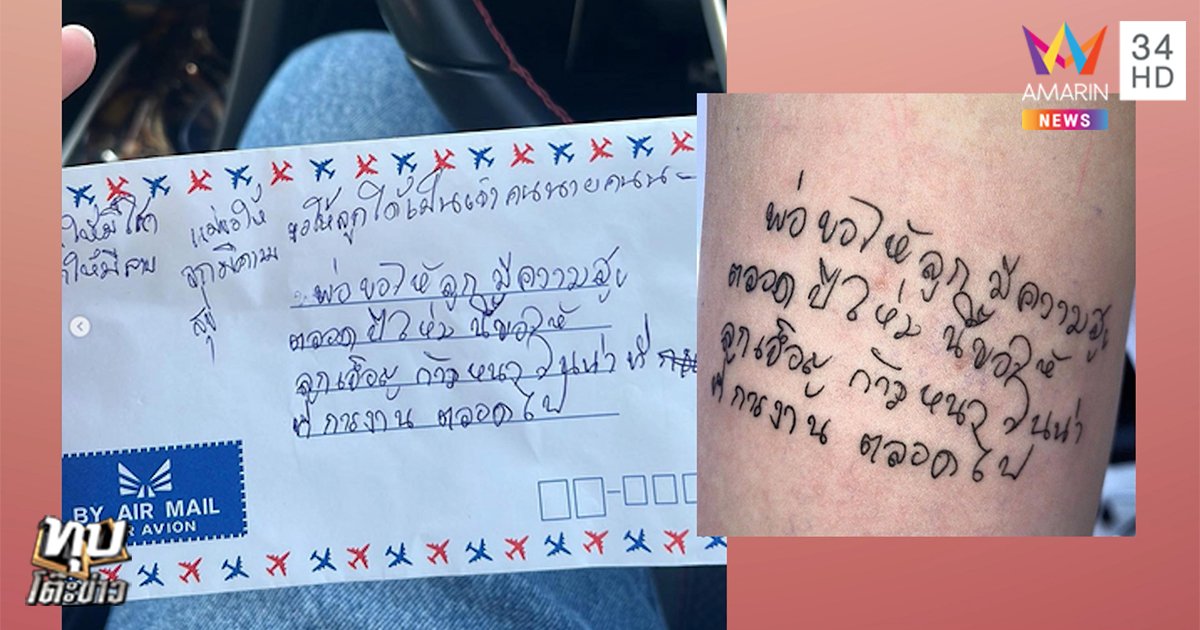 AMARIN
NEWS
34
HD
ให้มีโชค
ให้มีลาภ
แม่ขอให้
ลูกมีความ
สุข
ขอให้ลูกได้เป็นเจ้าคนนายคนนะ
พ่อขอให้ลูกมีความสุข
ตลอดปีใหม่นี้ขอให้
ลูกเจริญ ก้าวหนาในน่า ที่
ที่การงาน ตลอดไป
BY AIR MAIL
AVION
พ่อขอให้ลูกมีความสุข
ตลอดปีใหม่นี้ขอให้
ลูกเจริญ ก้าวหนาในน่า
ที่การงาน ตลอดไป
ทุบ
โต๊ะข่าว